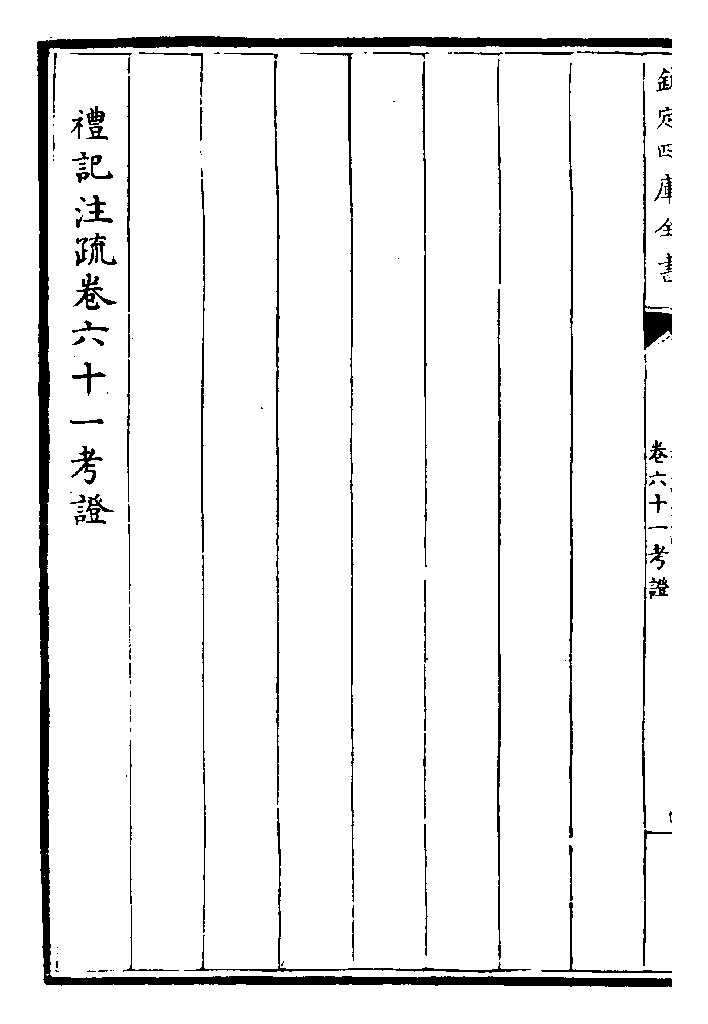 欽定四庫全書
卷六十一考證
禮記注疏卷六十一考證